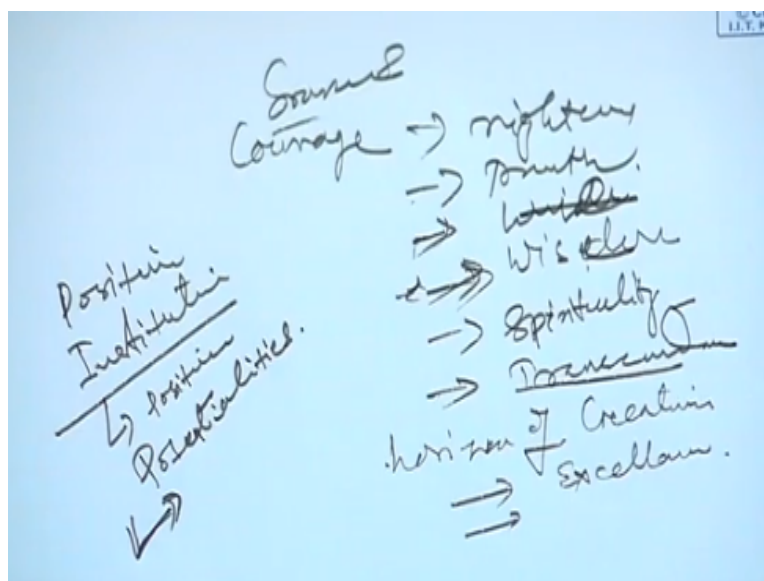 Courage → righteous
→ Truth.
→ Wisdom
→ Spirituality
→ Transcendence
horizon of Creative
Excellence.
Positive
Institution
↳ Positive
Potentialities.
I.I.T. K